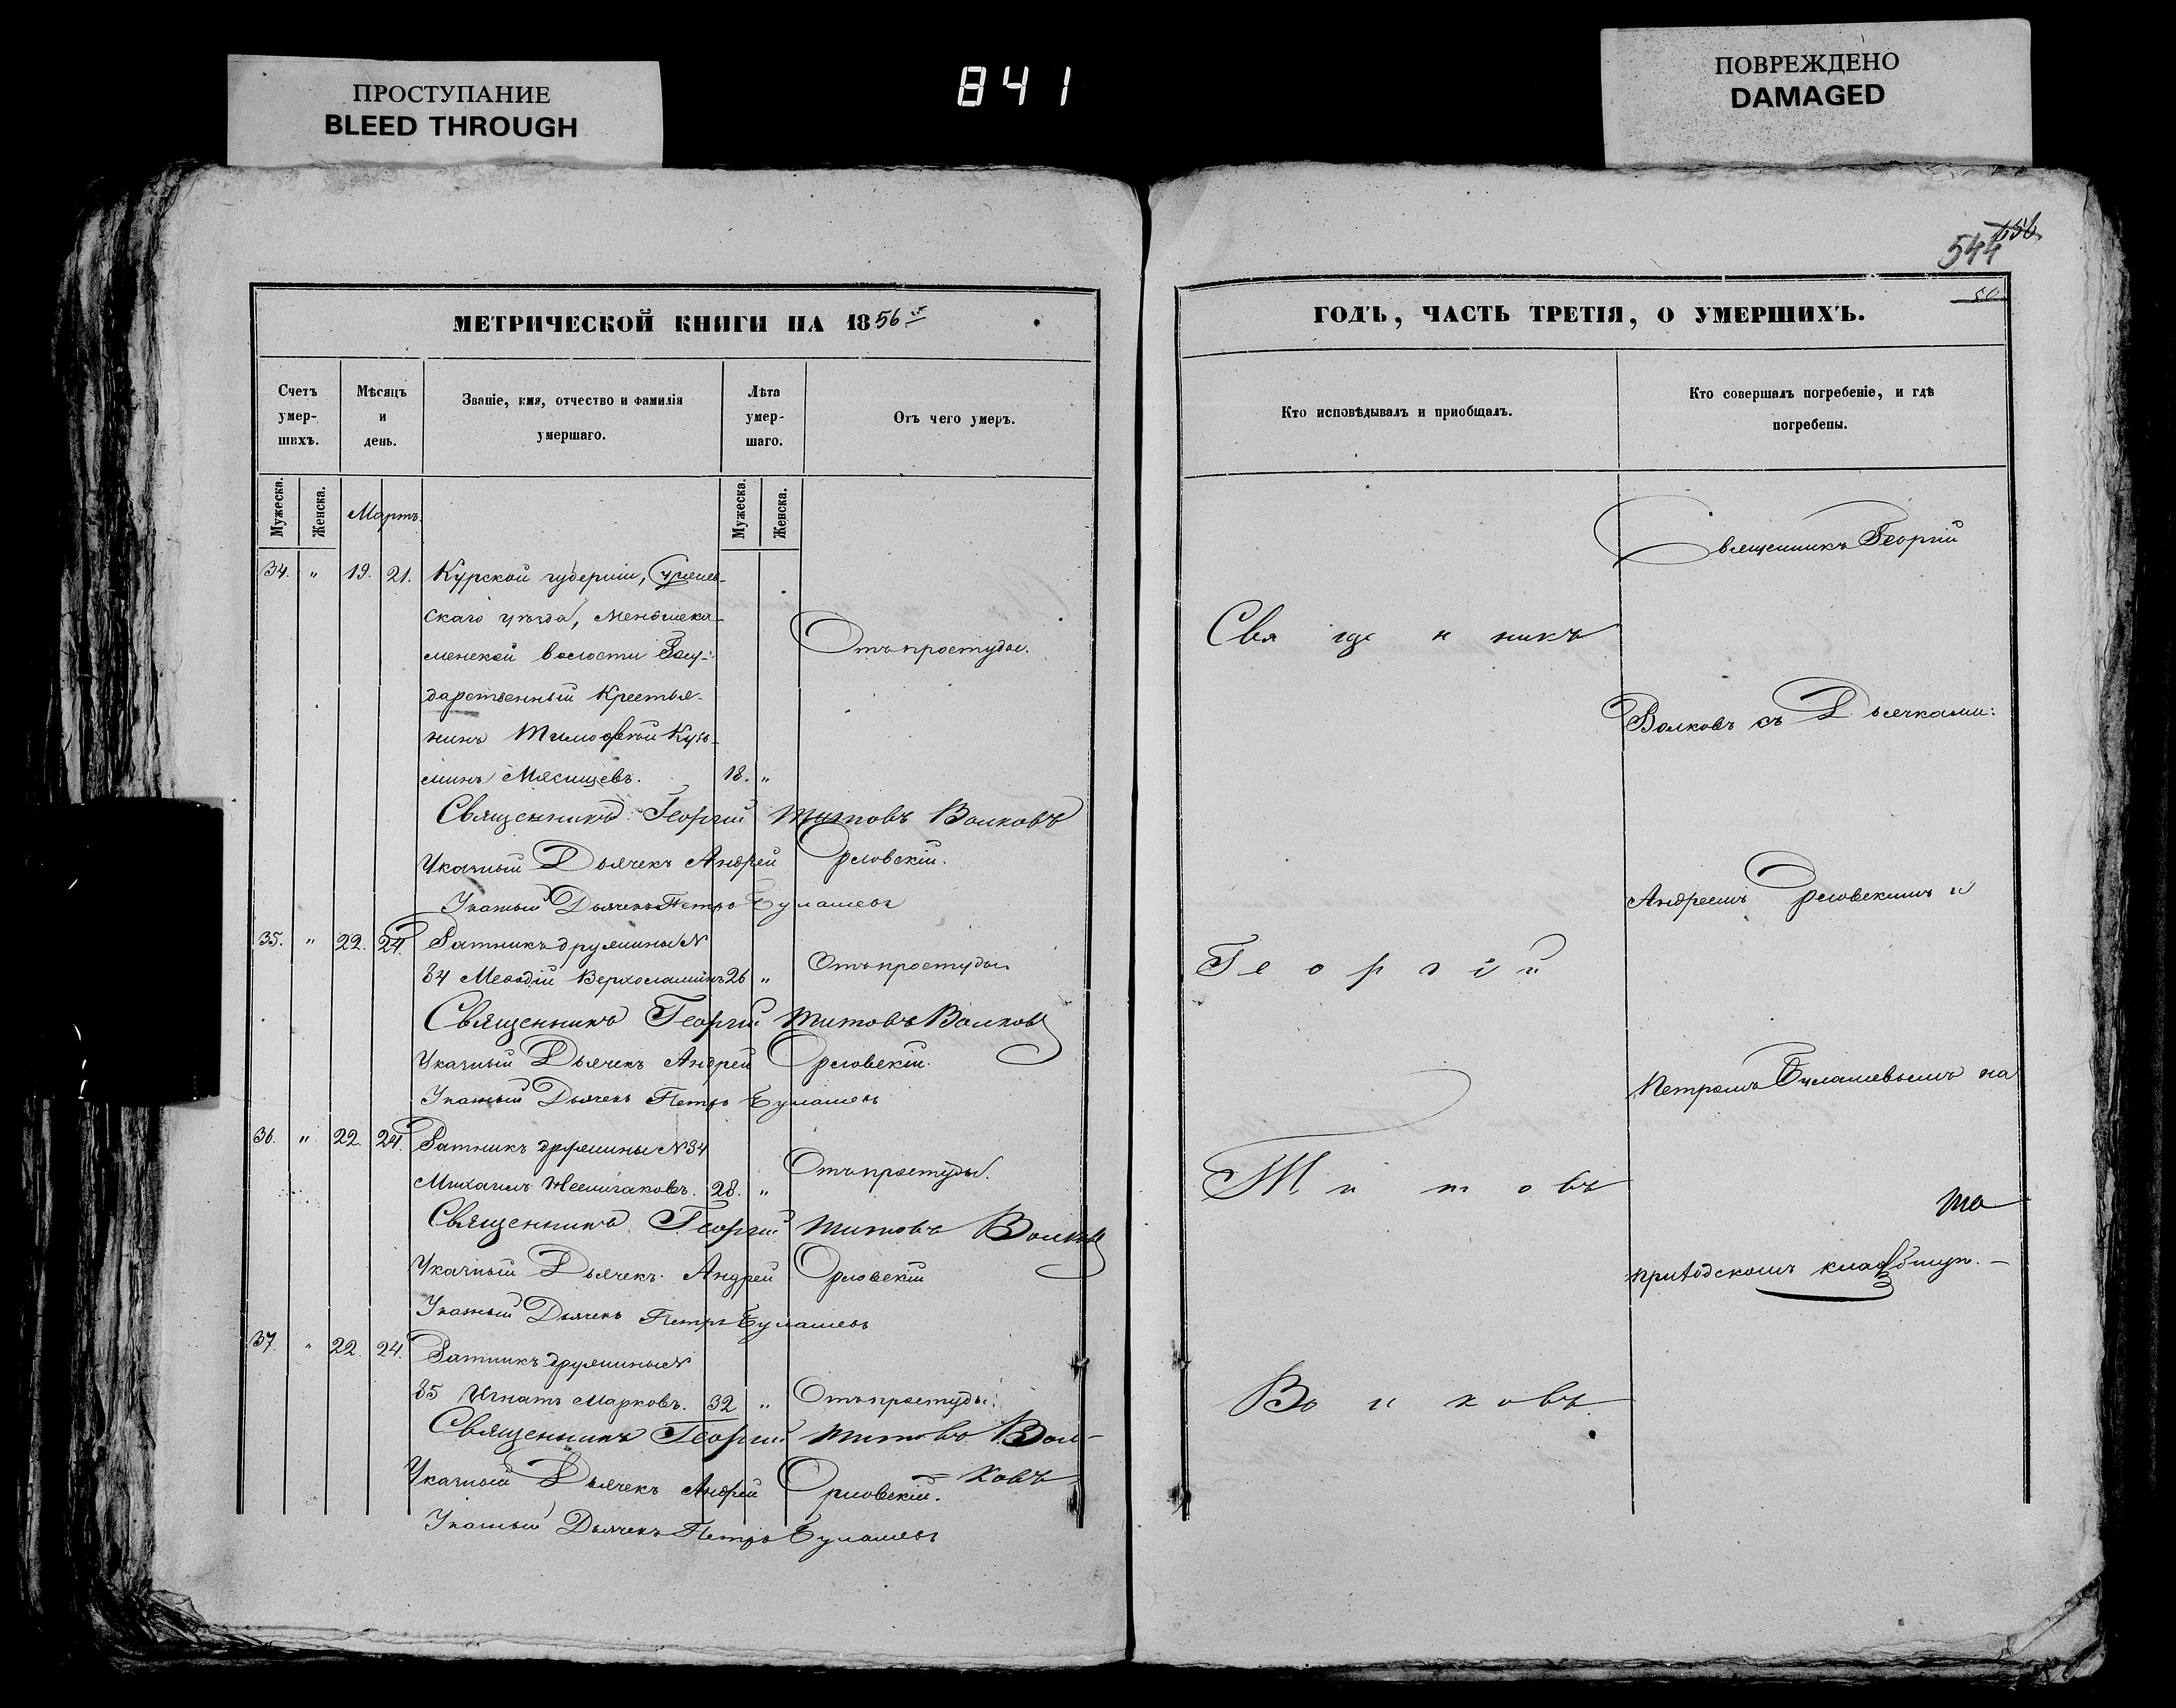 ПРОСТУПАНИЕ
BLEED THROUGH
841
ПОВРЕЖДЕНО
DAMAGED
МЕТРИЧЕСКОЙ КНИГИ НА 1856
Счетъ умер-шихъ.
Мѣсяцъ и день.
Званіе, имя, отчество и фамилія умершаго.
Лѣта умер-шаго.
Отъ чего умеръ.
Мужеска.
Женска.
Мартъ.
Мужеска.
Женска.
34. " 19. 21. Курской губерніи,
скаго уѣзда,
менской волости Госу-
Отъ простуды.
дарственный Крестья-
нинъ Тимофей Кузь-
минъ Мясищевъ. 18. "
Священникъ Георгий Титовъ Волковъ
Указный Дьячекъ Андрей Орловскій.
Указный Дьячекъ Петръ Булашевъ
35. " 22. 24. Ратникъ дружины №
34 Меѳодій 26 " Отъ простуды
Священникъ Георгий Титовъ Волковъ
Указный Дьячекъ Андрей Орловскій.
Указный Дьячекъ Петръ Булашевъ
36. " 22. 24. Ратникъ дружины №34
Михаилъ 28. " Отъ простуды.
Священникъ Георгий Титовъ Волковъ
Указный Дьячекъ Андрей Орловскій
Указный Дьячекъ Петръ Булашевъ
37. " 22. 24. Ратникъ дружины №
35 Игнатъ Марковъ. 32 " Отъ простуды.
Священникъ Георгий Титовъ Вол-
ковъ
Указный Дьячекъ Андрей Орловскій.
Указный Дьячекъ Петръ Булашевъ
544
50
ГОДЪ, ЧАСТЬ ТРЕТІЯ, О УМЕРШИХЪ.
Кто исповѣдывалъ и приобщалъ.
Кто совершалъ погребеніе, и гдѣ погребены.
Священникъ
Георгій
Титовъ
Волковъ
Священникъ Георгій
Волковъ съ Дьячками:
Андреемъ Орловскимъ и
Петромъ Булашевымъ на
приходскомъ кладбищѣ.